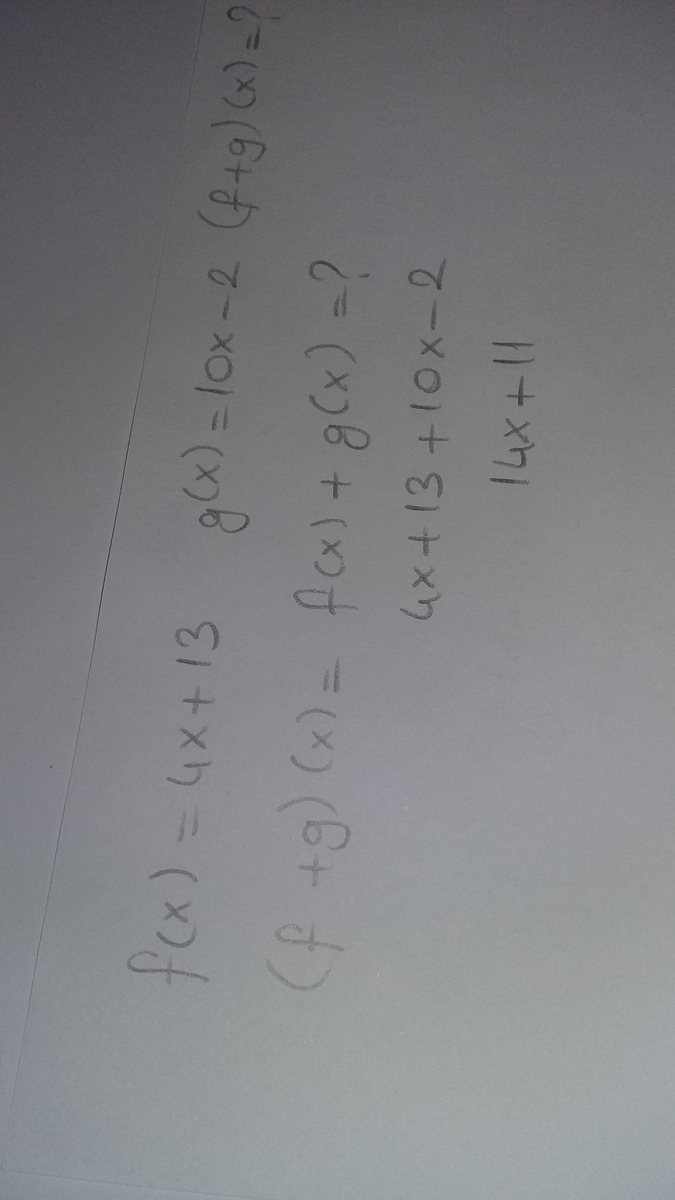 f(x) = 4x + 13 g(x) = 10x - 2 (f+g)(x) = ?
(f + g)(x) = f(x) + g(x) = ?
4x + 13 + 10x - 2
14x + 11